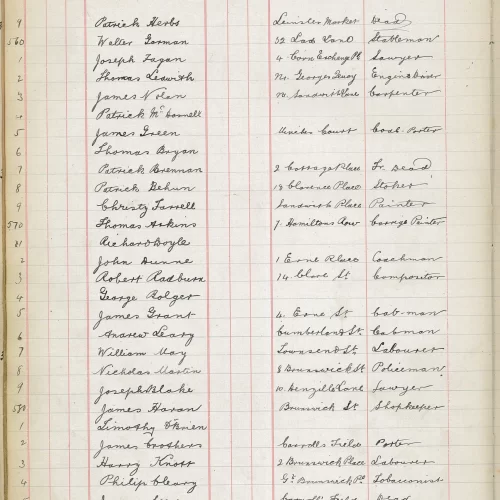 9 Patrick Herbs Leinster Market Dead
560 Walter Gorman 32 Lads Lane Stableman
1 Joseph Fagan 4 Corn Exchange Pl Sawyer
2 Thomas Ledwith Georges Quay Engine Driver
3 James Nolan Sandwith Lane Carpenter
4 Patrick McConnell
5 James Green Uncles Court Coal Porter
6 Thomas Bryan
7 Patrick Brennan 2 Cottage Place Fr. Dead
8 Patrick Behun 13 Clarence Place Stoker
9 Christy Farrell Sandwith Place Painter
570 Thomas Askins 7. Hamiltons Row Carrage Painter
Richard Doyle
2 John Dunne 1 Erne Place Coachman
3 Robert Radburn 14 Clare St Compositor
4 George Bolger
5 James Grant 4. Erne St Cab-man
6 Andrew Leary Cumberland St. Cabman
7 William May Townsend St. Labourer
8 Nicholas Martin 8 Brunswick St Policeman
9 Joseph Blake 10. Denzille Lane Sawyer
580 James Haran Brunswick St Shopkeeper
1 Timothy
2 James Crothers Carrolls Fields Porter
3 Harry Knott 2 Brunswick Place Labourer
4 Philip Cleary Gt. Brunswick Pl. Tobaconist